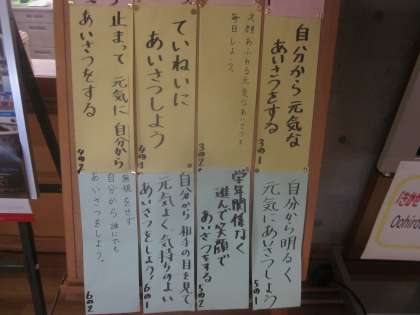 自分から元気な
あいさつをする
3の1
笑顔あふれる元気なあいさつを
毎日しよう。
3の2
ていねいに
あいさつしよう
4の1
止まって 元気に 自分から
あいさつをする
4の2
自分から明るく
元気にあいさつしよう
5の1
学年関係なく
進んで笑顔で
あいさつをする
5の2
自分から 相手の目を見て
元気よく 気持ちのよい
あいさつをしよう!
6の1
無視をせず
自分から 誰にでも
あいさつをしよう。
6の2
Oohiro